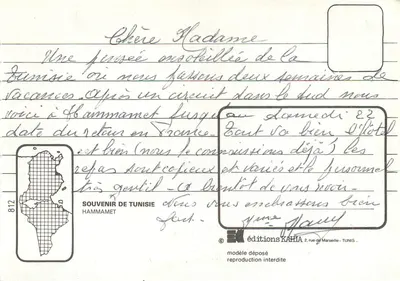 Chère Madame
Une pensée ensoleillée de la
Tunisie où nous passons deux semaines de
vacances. Après un circuit dans le Sud nous
voici à Hammamet jusqu'au samedi 22
date du retour en France. Tout va bien, l'hôtel
est bien (nous le connaissions déjà) les
repas sont copieux et variés et le personnel
très gentil - à bientôt de vous voir -
Nous vous embrassons bien
fort.
812
SOUVENIR DE TUNISIE
HAMMAMET
éditions KAHIA 2, rue de Marseille - TUNIS.
modèle déposé
reproduction interdite